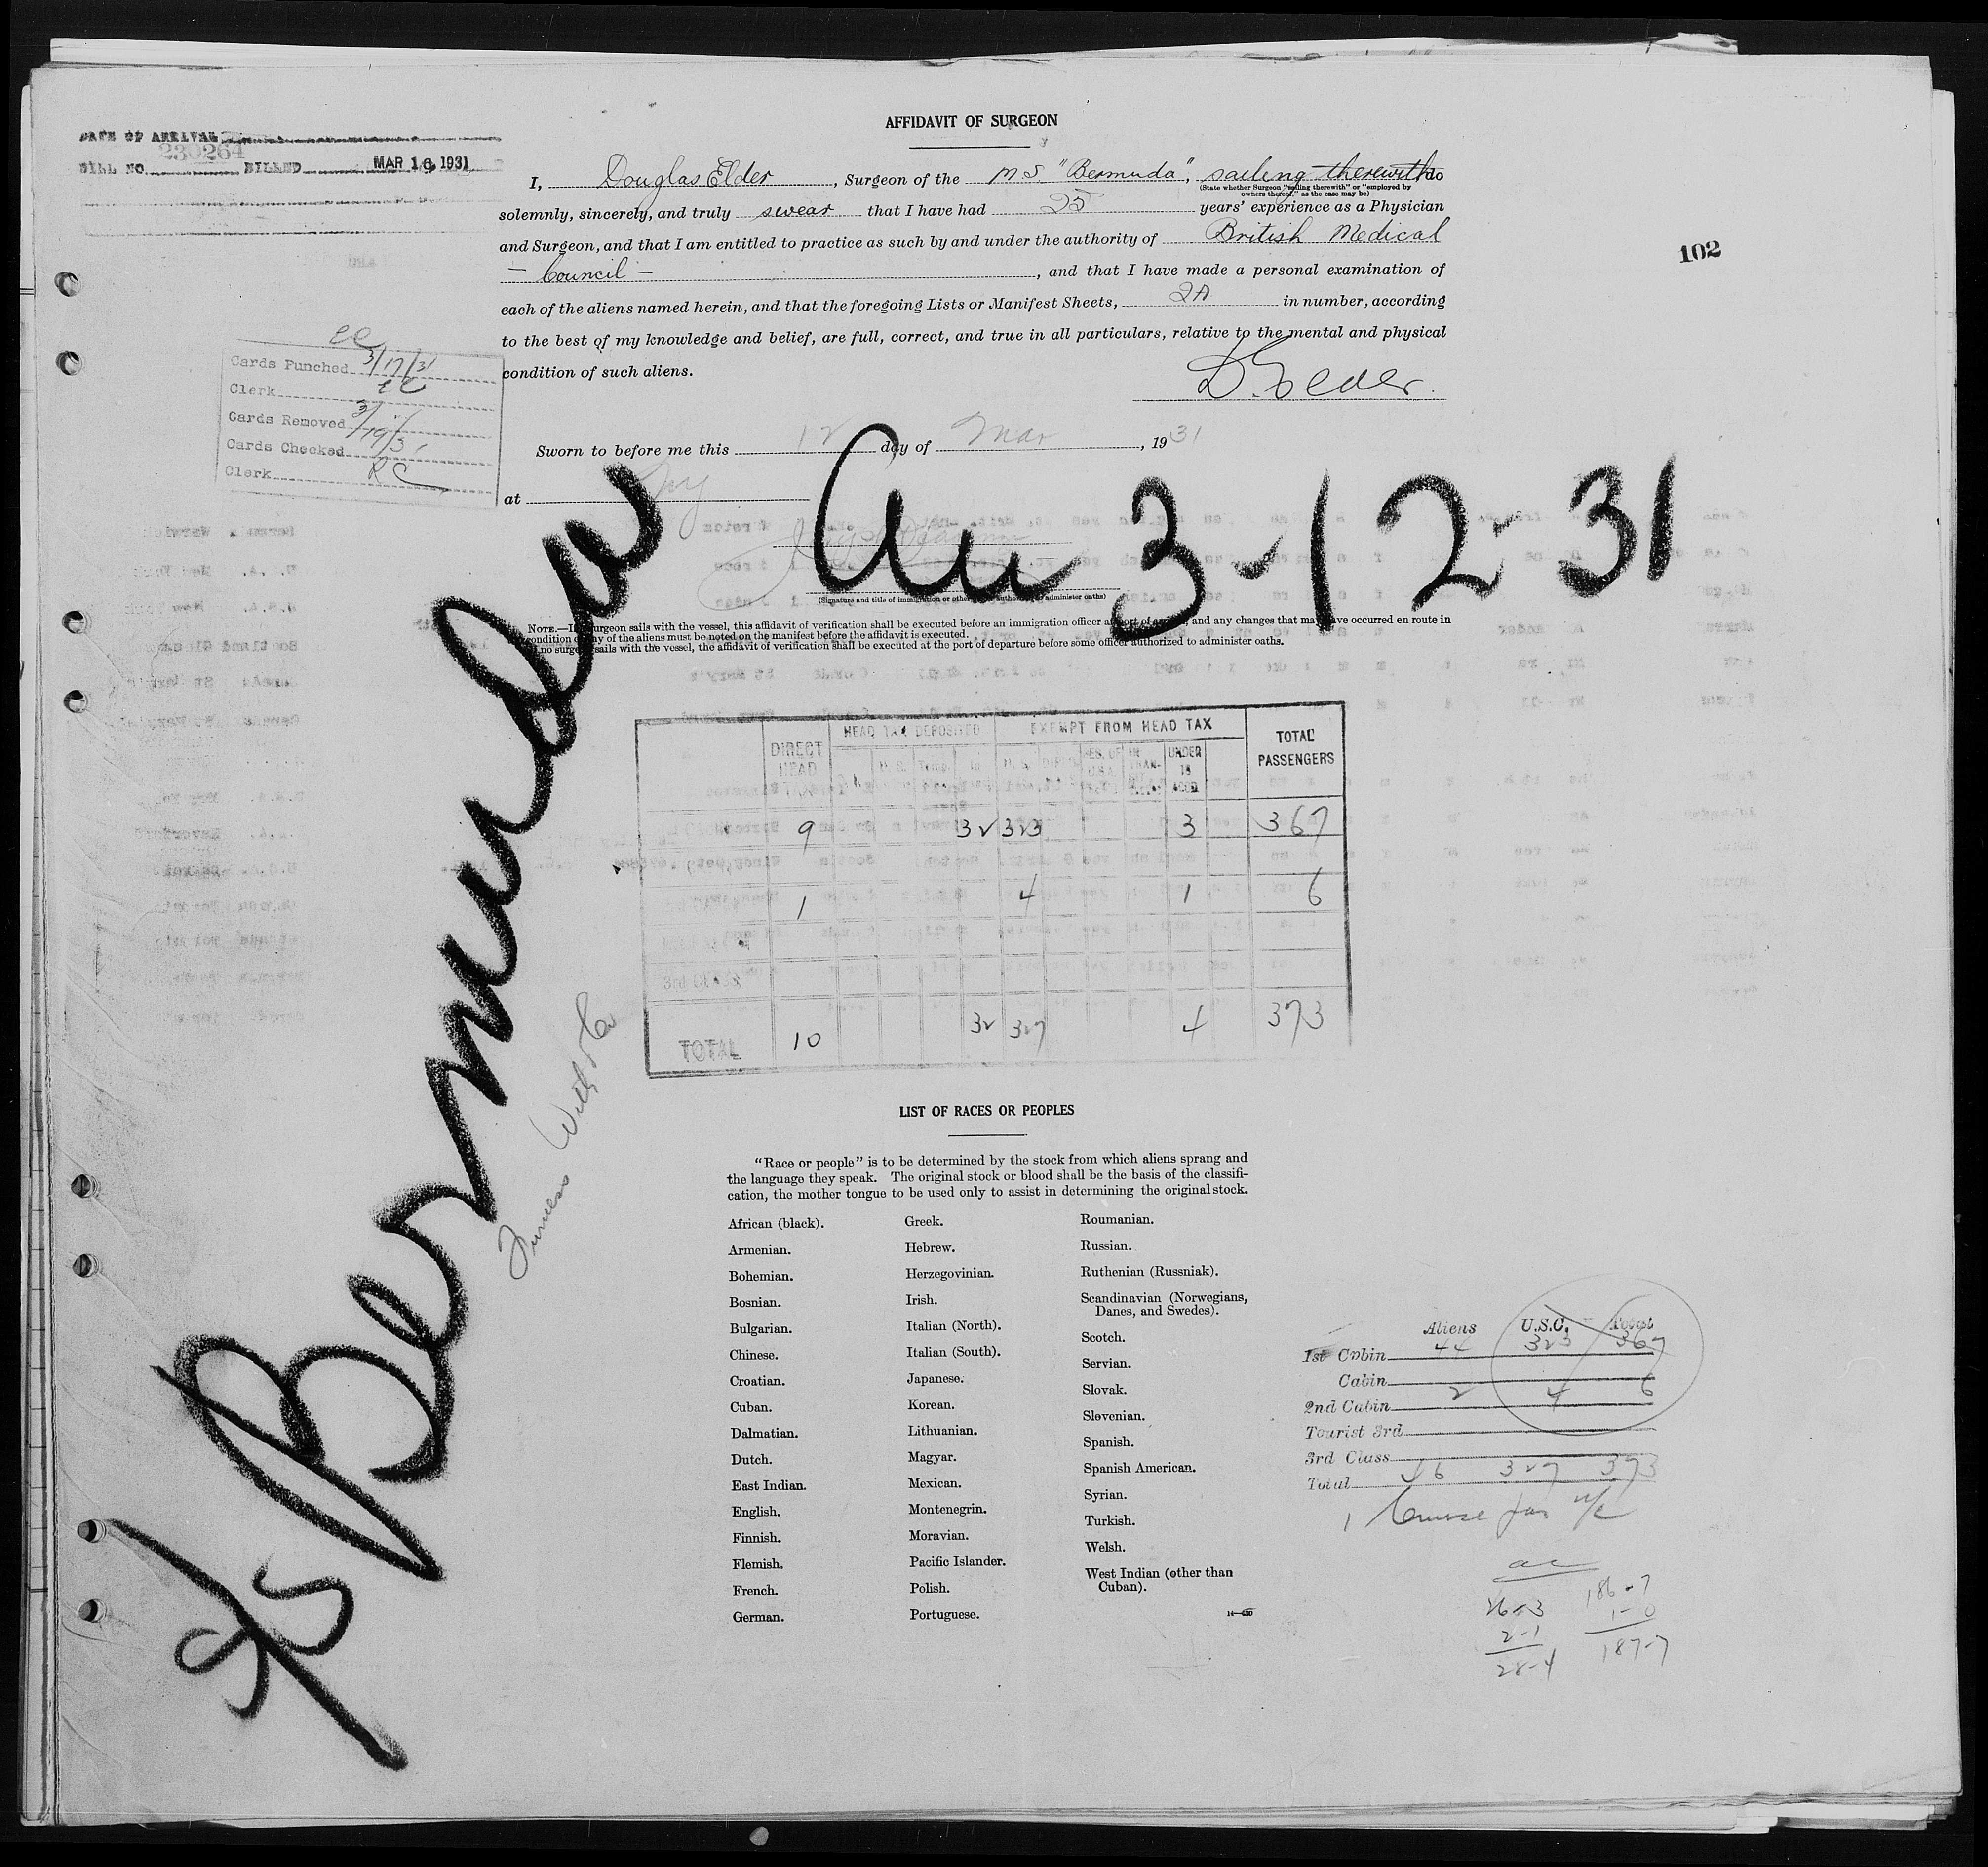 AFFIDAVIT OF SURGEON
DATE OF ARRIVAL
BILL NO. 230264 BILLED MAR 16 1931
102
I, Douglas Elder, Surgeon of the M.S "Bermuda", sailing therewith do
(State whether Surgeon "sailing therewith" or "employed by
owners thereof," as the case may be)
solemnly, sincerely, and truly swear that I have had 25 years' experience as a Physician
and Surgeon, and that I am entitled to practice as such by and under the authority of British Medical
- Council -, and that I have made a personal examination of
each of the aliens named herein, and that the foregoing Lists or Manifest Sheets, in number, according
to the best of my knowledge and belief, are full, correct, and true in all particulars, relative to the mental and physical
condition of such aliens.
D. Elder.
Cards Punched 3/17/31
Clerk
Cards Removed
Cards Checked 3/19/31
Clerk RC
Sworn to before me this 12 day of Mar, 1931
at NY
(Signature and title of immigration or other officer authorized to administer oaths)
Arr 3-12-31
NOTE.—If surgeon sails with the vessel, this affidavit of verification shall be executed before an immigration officer at port of arrival, and any changes that may have occurred en route in
condition of any of the aliens must be noted on the manifest before the affidavit is executed.
If no surgeon sails with the vessel, the affidavit of verification shall be executed at the port of departure before some officer authorized to administer oaths.
S/S Bermuda
Furness Withy Co
DIRECT HEAD TAX
HEAD TAX DEPOSITED
EXEMPT FROM HEAD TAX
TOTAL PASSENGERS
UNDER 16
9 32 323 3 367
1 4 1 6
3rd CLASS
TOTAL 10 32 327 4 373
LIST OF RACES OR PEOPLES
"Race or people" is to be determined by the stock from which aliens sprang and
the language they speak. The original stock or blood shall be the basis of the classifi-
cation, the mother tongue to be used only to assist in determining the original stock.
African (black).
Armenian.
Bohemian.
Bosnian.
Bulgarian.
Chinese.
Croatian.
Cuban.
Dalmatian.
Dutch.
East Indian.
English.
Finnish.
Flemish.
French.
German.
Greek.
Hebrew.
Herzegovinian.
Irish.
Italian (North).
Italian (South).
Japanese.
Korean.
Lithuanian.
Magyar.
Mexican.
Montenegrin.
Moravian.
Pacific Islander.
Polish.
Portuguese.
Roumanian.
Russian.
Ruthenian (Russniak).
Scandinavian (Norwegians,
Danes, and Swedes).
Scotch.
Servian.
Slovak.
Slovenian.
Spanish.
Spanish American.
Syrian.
Turkish.
Welsh.
West Indian (other than
Cuban).
Aliens U.S.C. Total
1st Cabin 44 323 367
Cabin
2nd Cabin 2 4 6
Tourist 3rd
3rd Class
Total 46 327 373
26-3 186-7
2-1 1-0
28-4 187-7